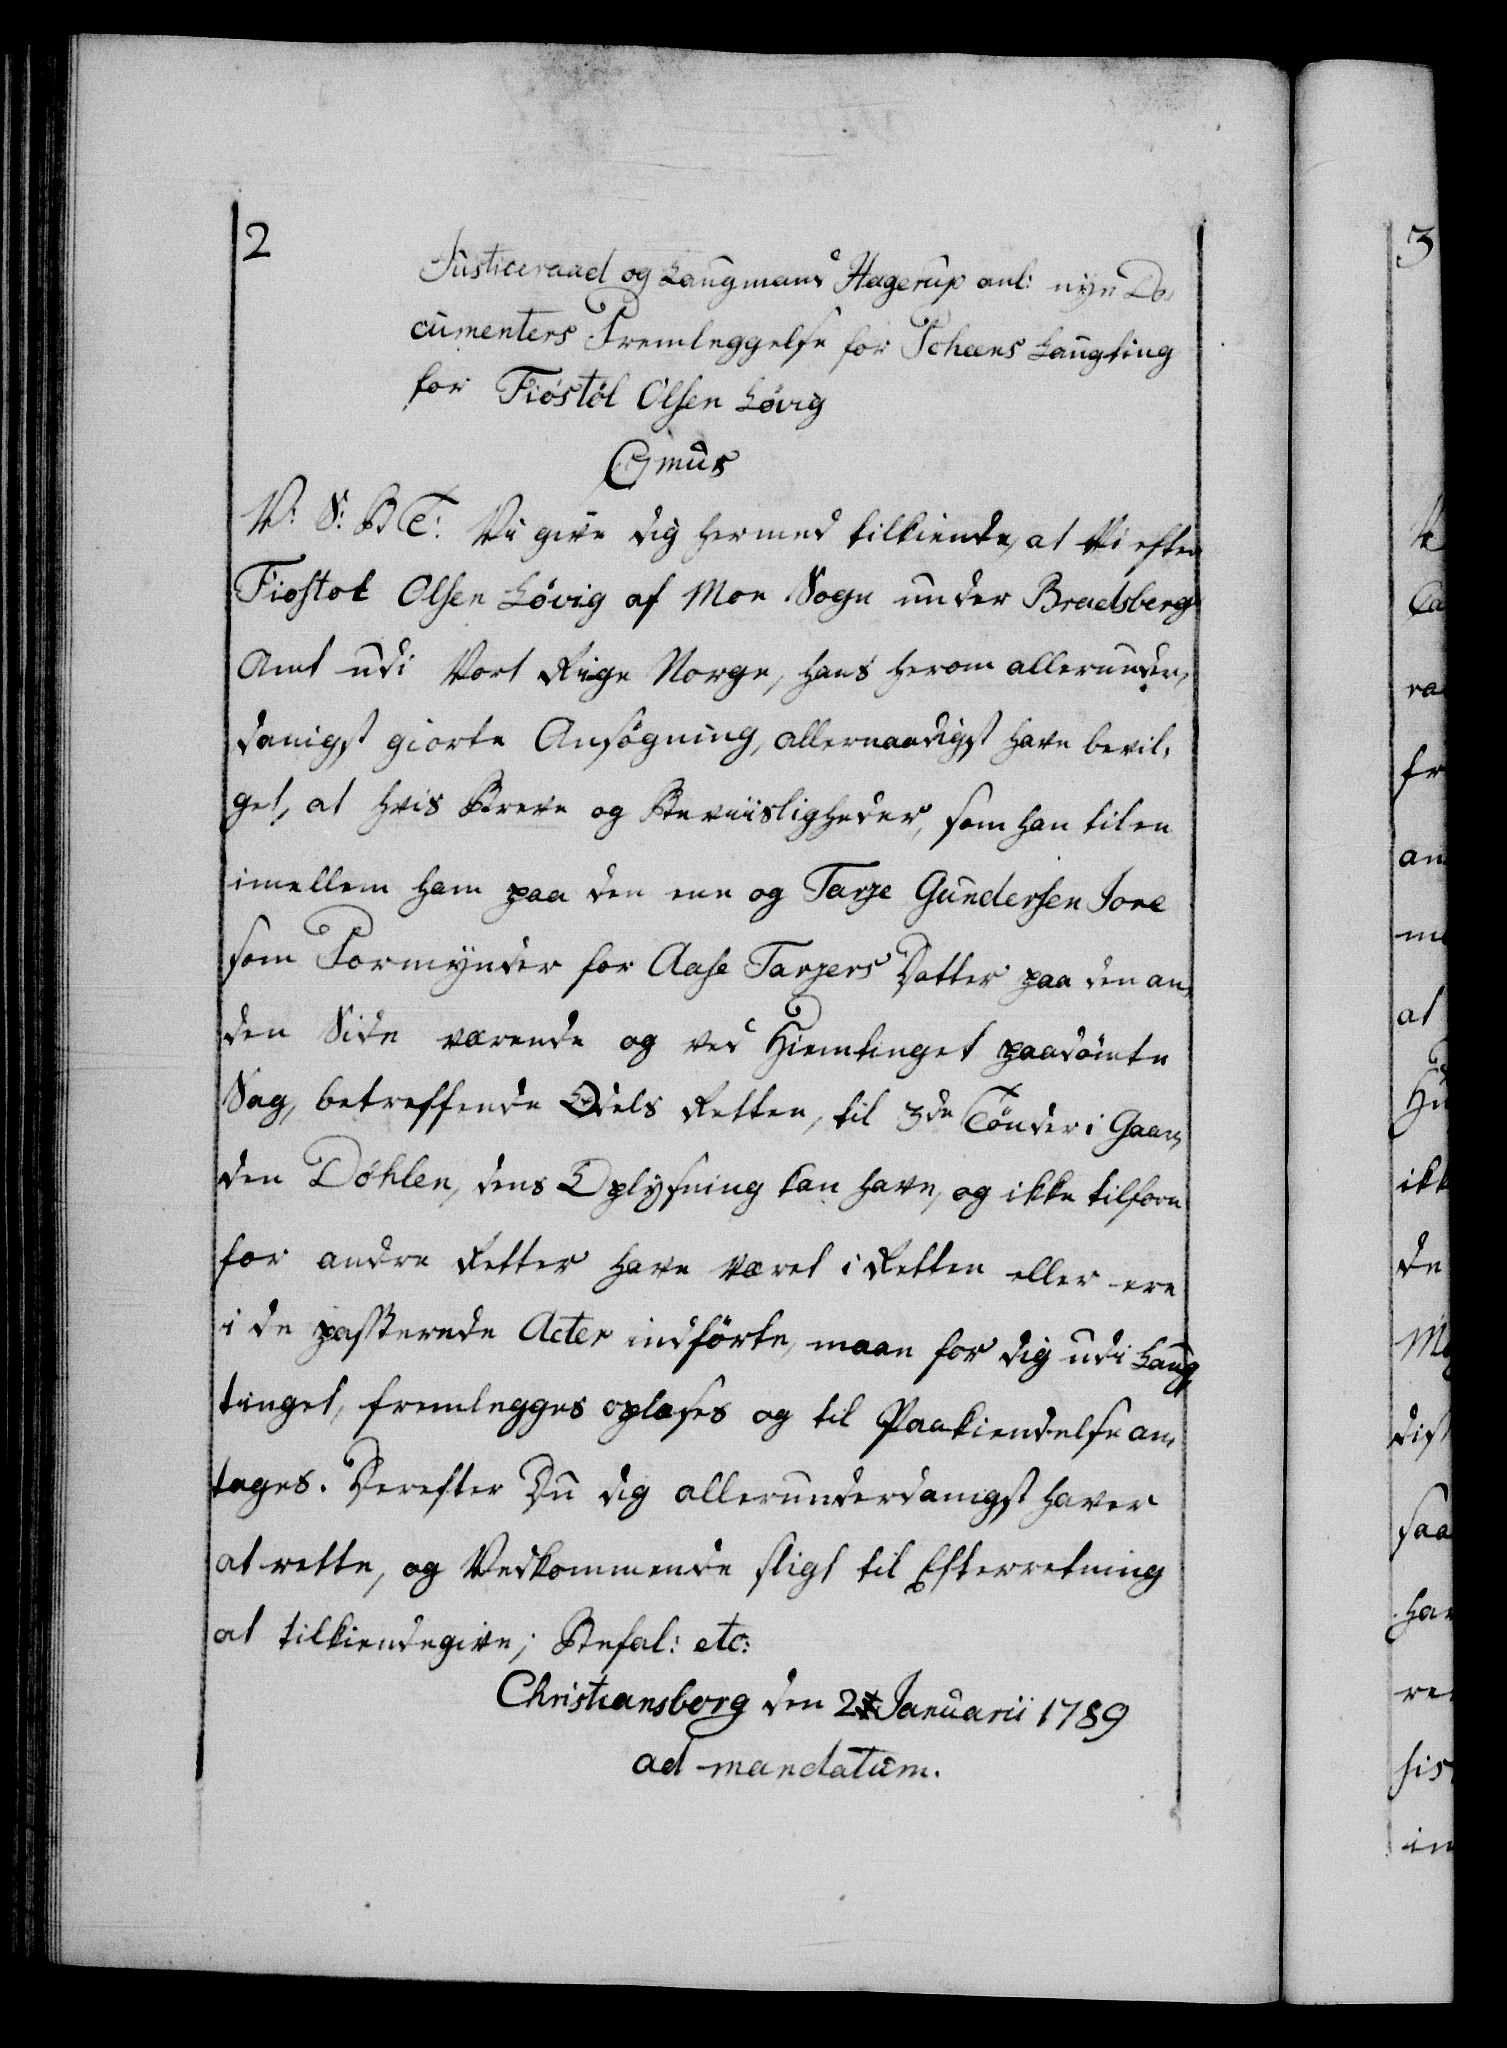 2
Justiceraad og Laugmand Hagerup anl: nye Do-
cumenters Fremleggelse for Scheens Laugting
for Fiöstöl Olsen Lövig
C7mus
V: S: B T: Vi give dig hermed tilkiende, at Vi efter
Fiostol Olsen Lövig af Moe Sogn under Bradsberg
Amt udi Vort Rige Norge, hans herom allerunder-
danigst giorte Ansögning, allernaadigst have bevil-
get, at hvis Breve og Beviisligheder, som han til en
imellem ham paa den ene og Tarje Gundersen Jore
som Formynder for Aase Tarjers Datter paa den an-
den Side værende og ved Hiemtinget paadömte
Sag, betreffende Odels Retten, til 3de Tönder i Gaar-
den Döhlen, dens Oplysning kan have, og ikke tilforn
for andre Retter have været i Retten eller ere
i de passerede Acter indförte, maae for dig udi Laug-
tinget, fremlegges oplæses og til Paakiendelse an-
tages. Derefter Du dig allerunderdanigst haver
at rette, og Vedkommende sligt til Efterretning
at tilkiendegive; Befal: etc:
Christiansborg den 2 Januarii 1789
ad mandatum.
3